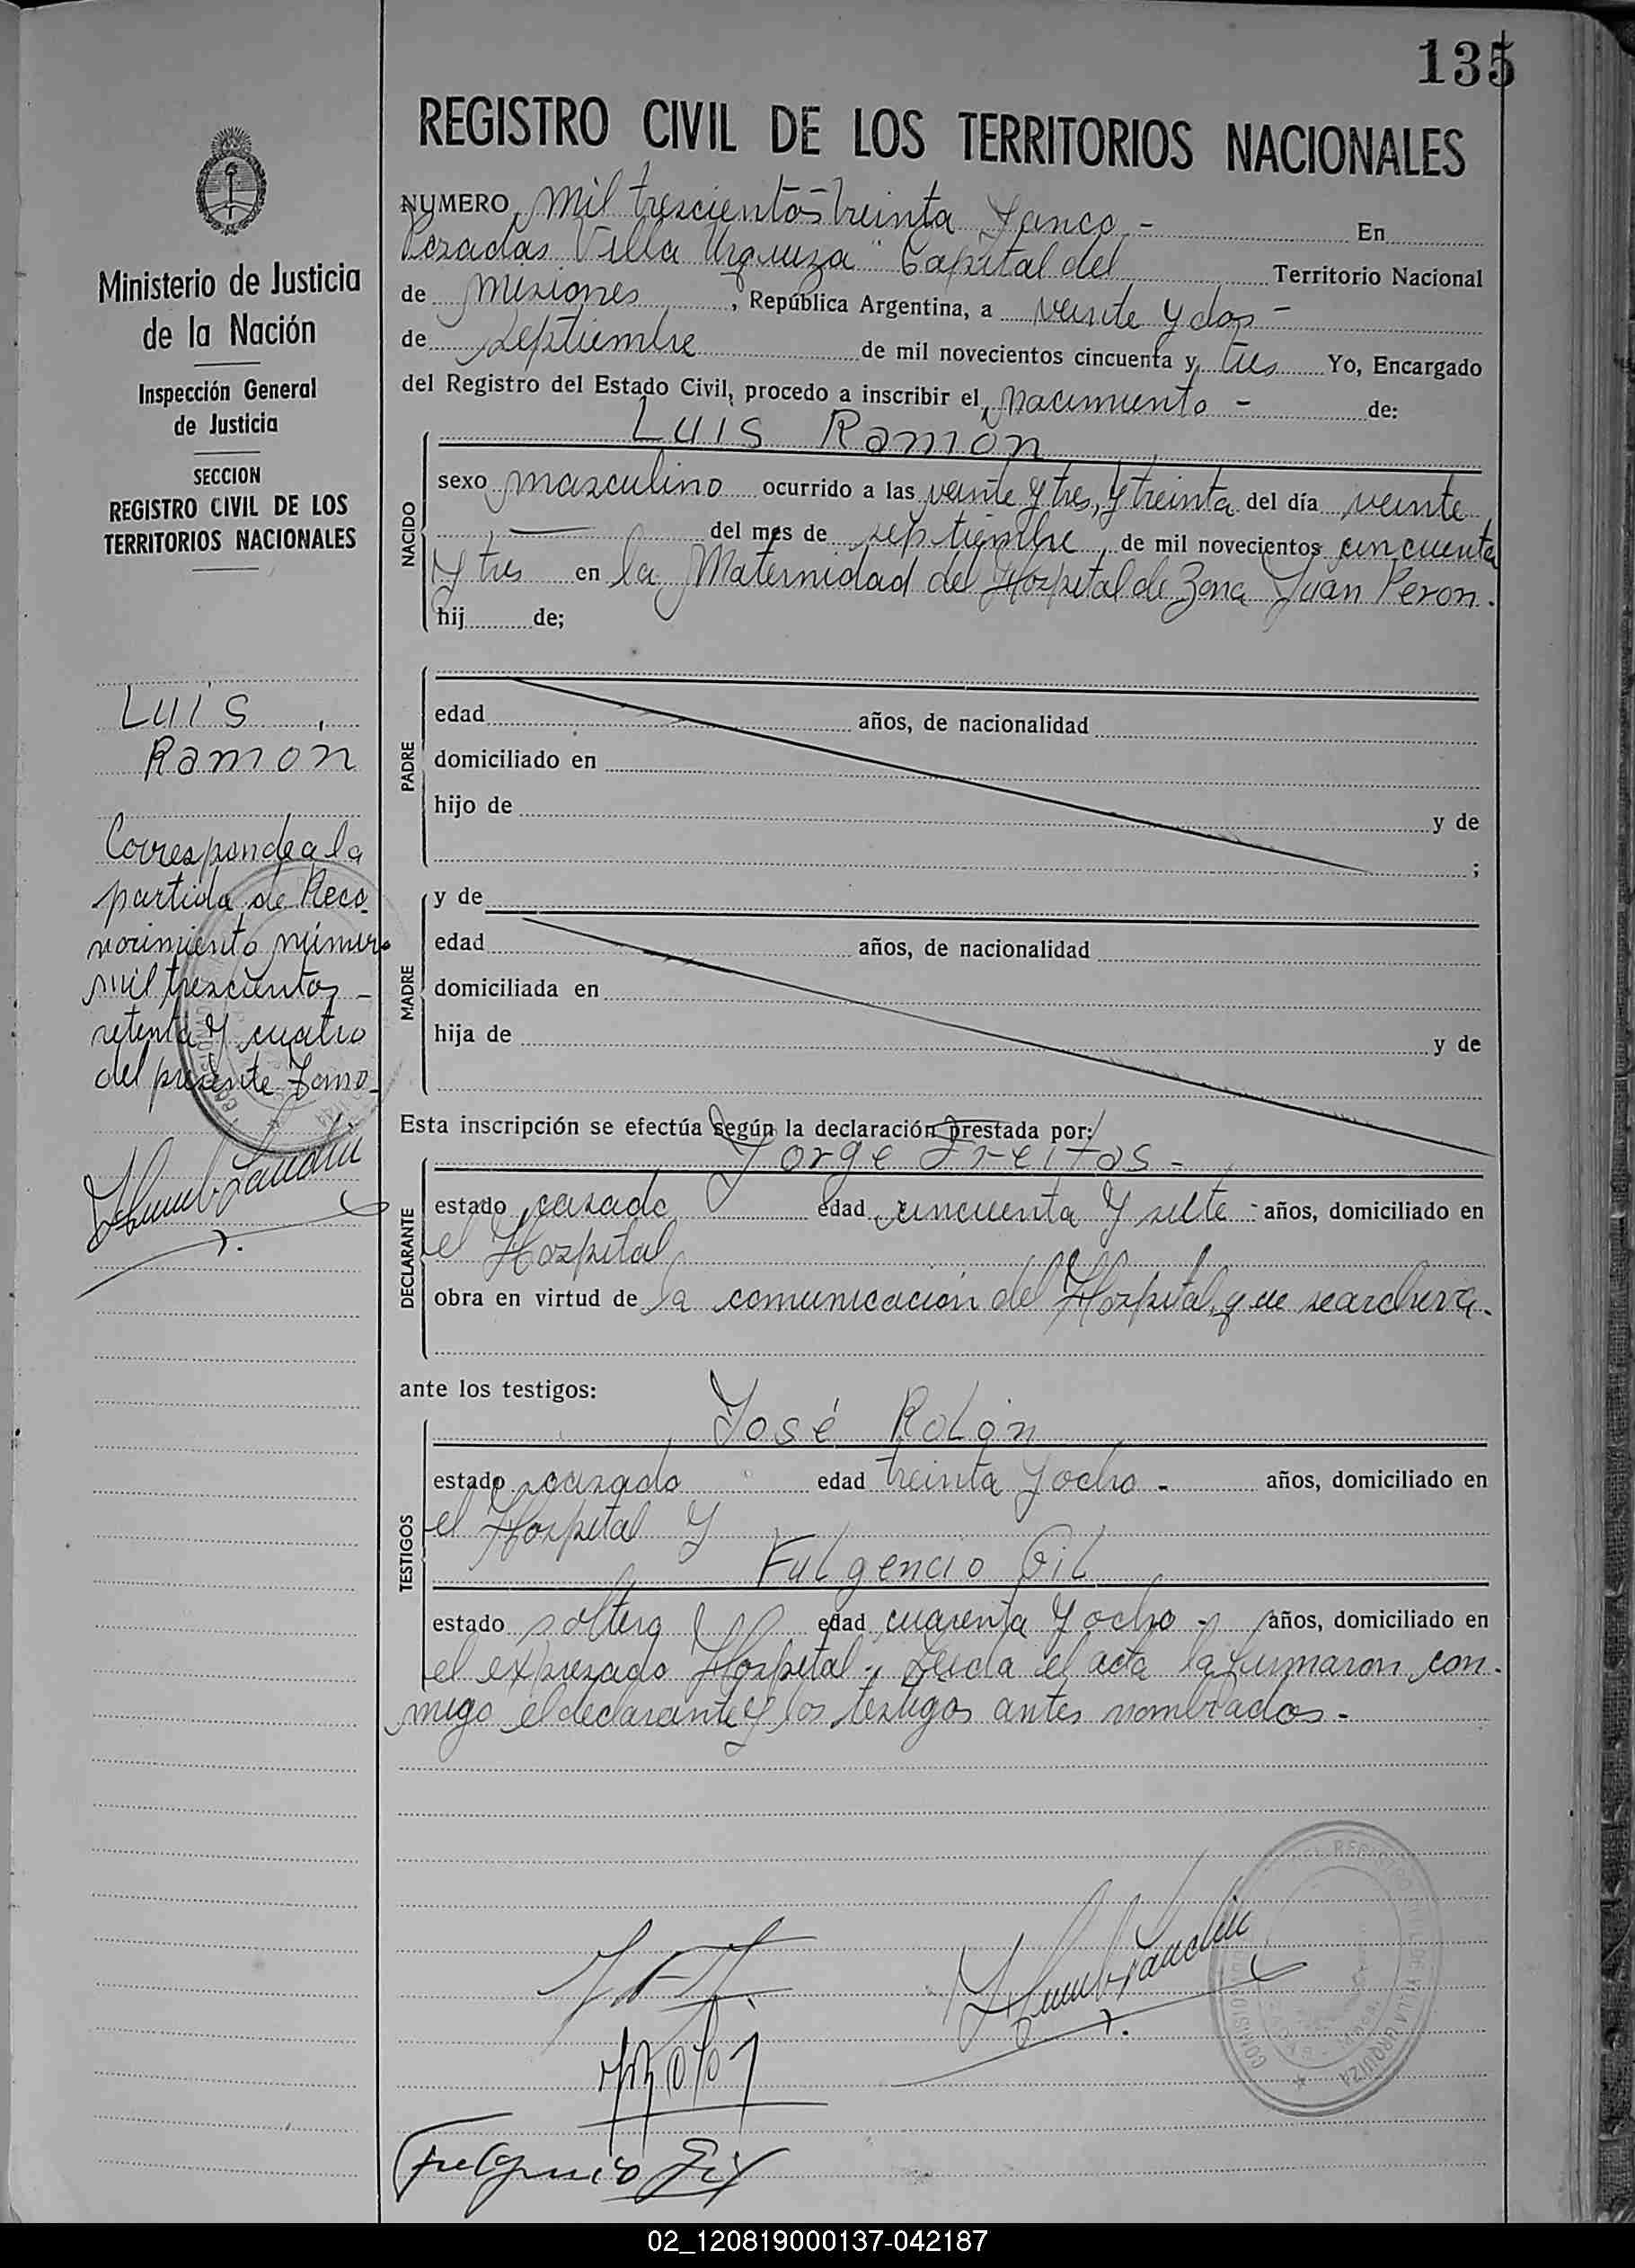 135
REGISTRO CIVIL DE LOS TERRITORIOS NACIONALES
Ministerio de Justicia
de la Nación
Inspección General
de Justicia
SECCION
REGISTRO CIVIL DE LOS
TERRITORIOS NACIONALES
Luis
Ramon
Corresponde a la
partida de Reco
nocimiento número
mil trescientos -
setenta y cuatro
del presente Tomo
NUMERO mil trescientos treinta y cinco - En
Posadas "Villa Urquiza" Capital del Territorio Nacional
de Misiones, República Argentina, a veinte y dos -
de septiembre de mil novecientos cincuenta y tres Yo, Encargado
del Registro del Estado Civil, procedo a inscribir el nacimiento - de:
NACIDO
Luis Ramón
sexo masculino ocurrido a las veinte y tres, y treinta del día veinte
del mes de septiembre, de mil novecientos cincuenta
y tres en la Maternidad del Hospital de Zona Juan Peron.
hij de;
PADRE
edad años, de nacionalidad
domiciliado en
hijo de y de
;
MADRE
y de
edad años, de nacionalidad
domiciliada en
hija de y de
Esta inscripción se efectúa según la declaración prestada por:
DECLARANTE
Jorge Freitas -
estado casado edad cincuenta y siete - años, domiciliado en
el Hospital
obra en virtud de la comunicación del Hospital, que se archiva.
ante los testigos:
TESTIGOS
José Rolón
estado casado edad treinta y ocho - años, domiciliado en
el Hospital y
Fulgencio Gil
estado soltero edad cuarenta y ocho - años, domiciliado en
el expresado Hospital.- Leida el acta la firmaron con-
migo el declarante y los testigos antes nombrados.-
Fulgencio Gil
VILLA URQUIZA
02_120819000137-042187